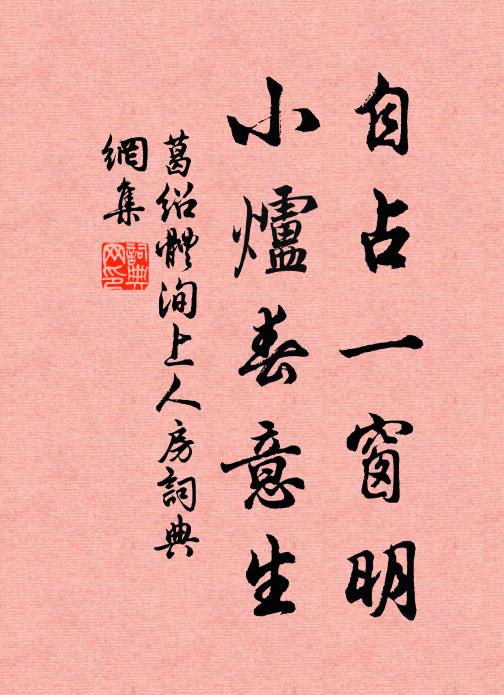 自占一窗明
小爐春意生
葛紹體洵上人房詞典
網集
詞典
网印